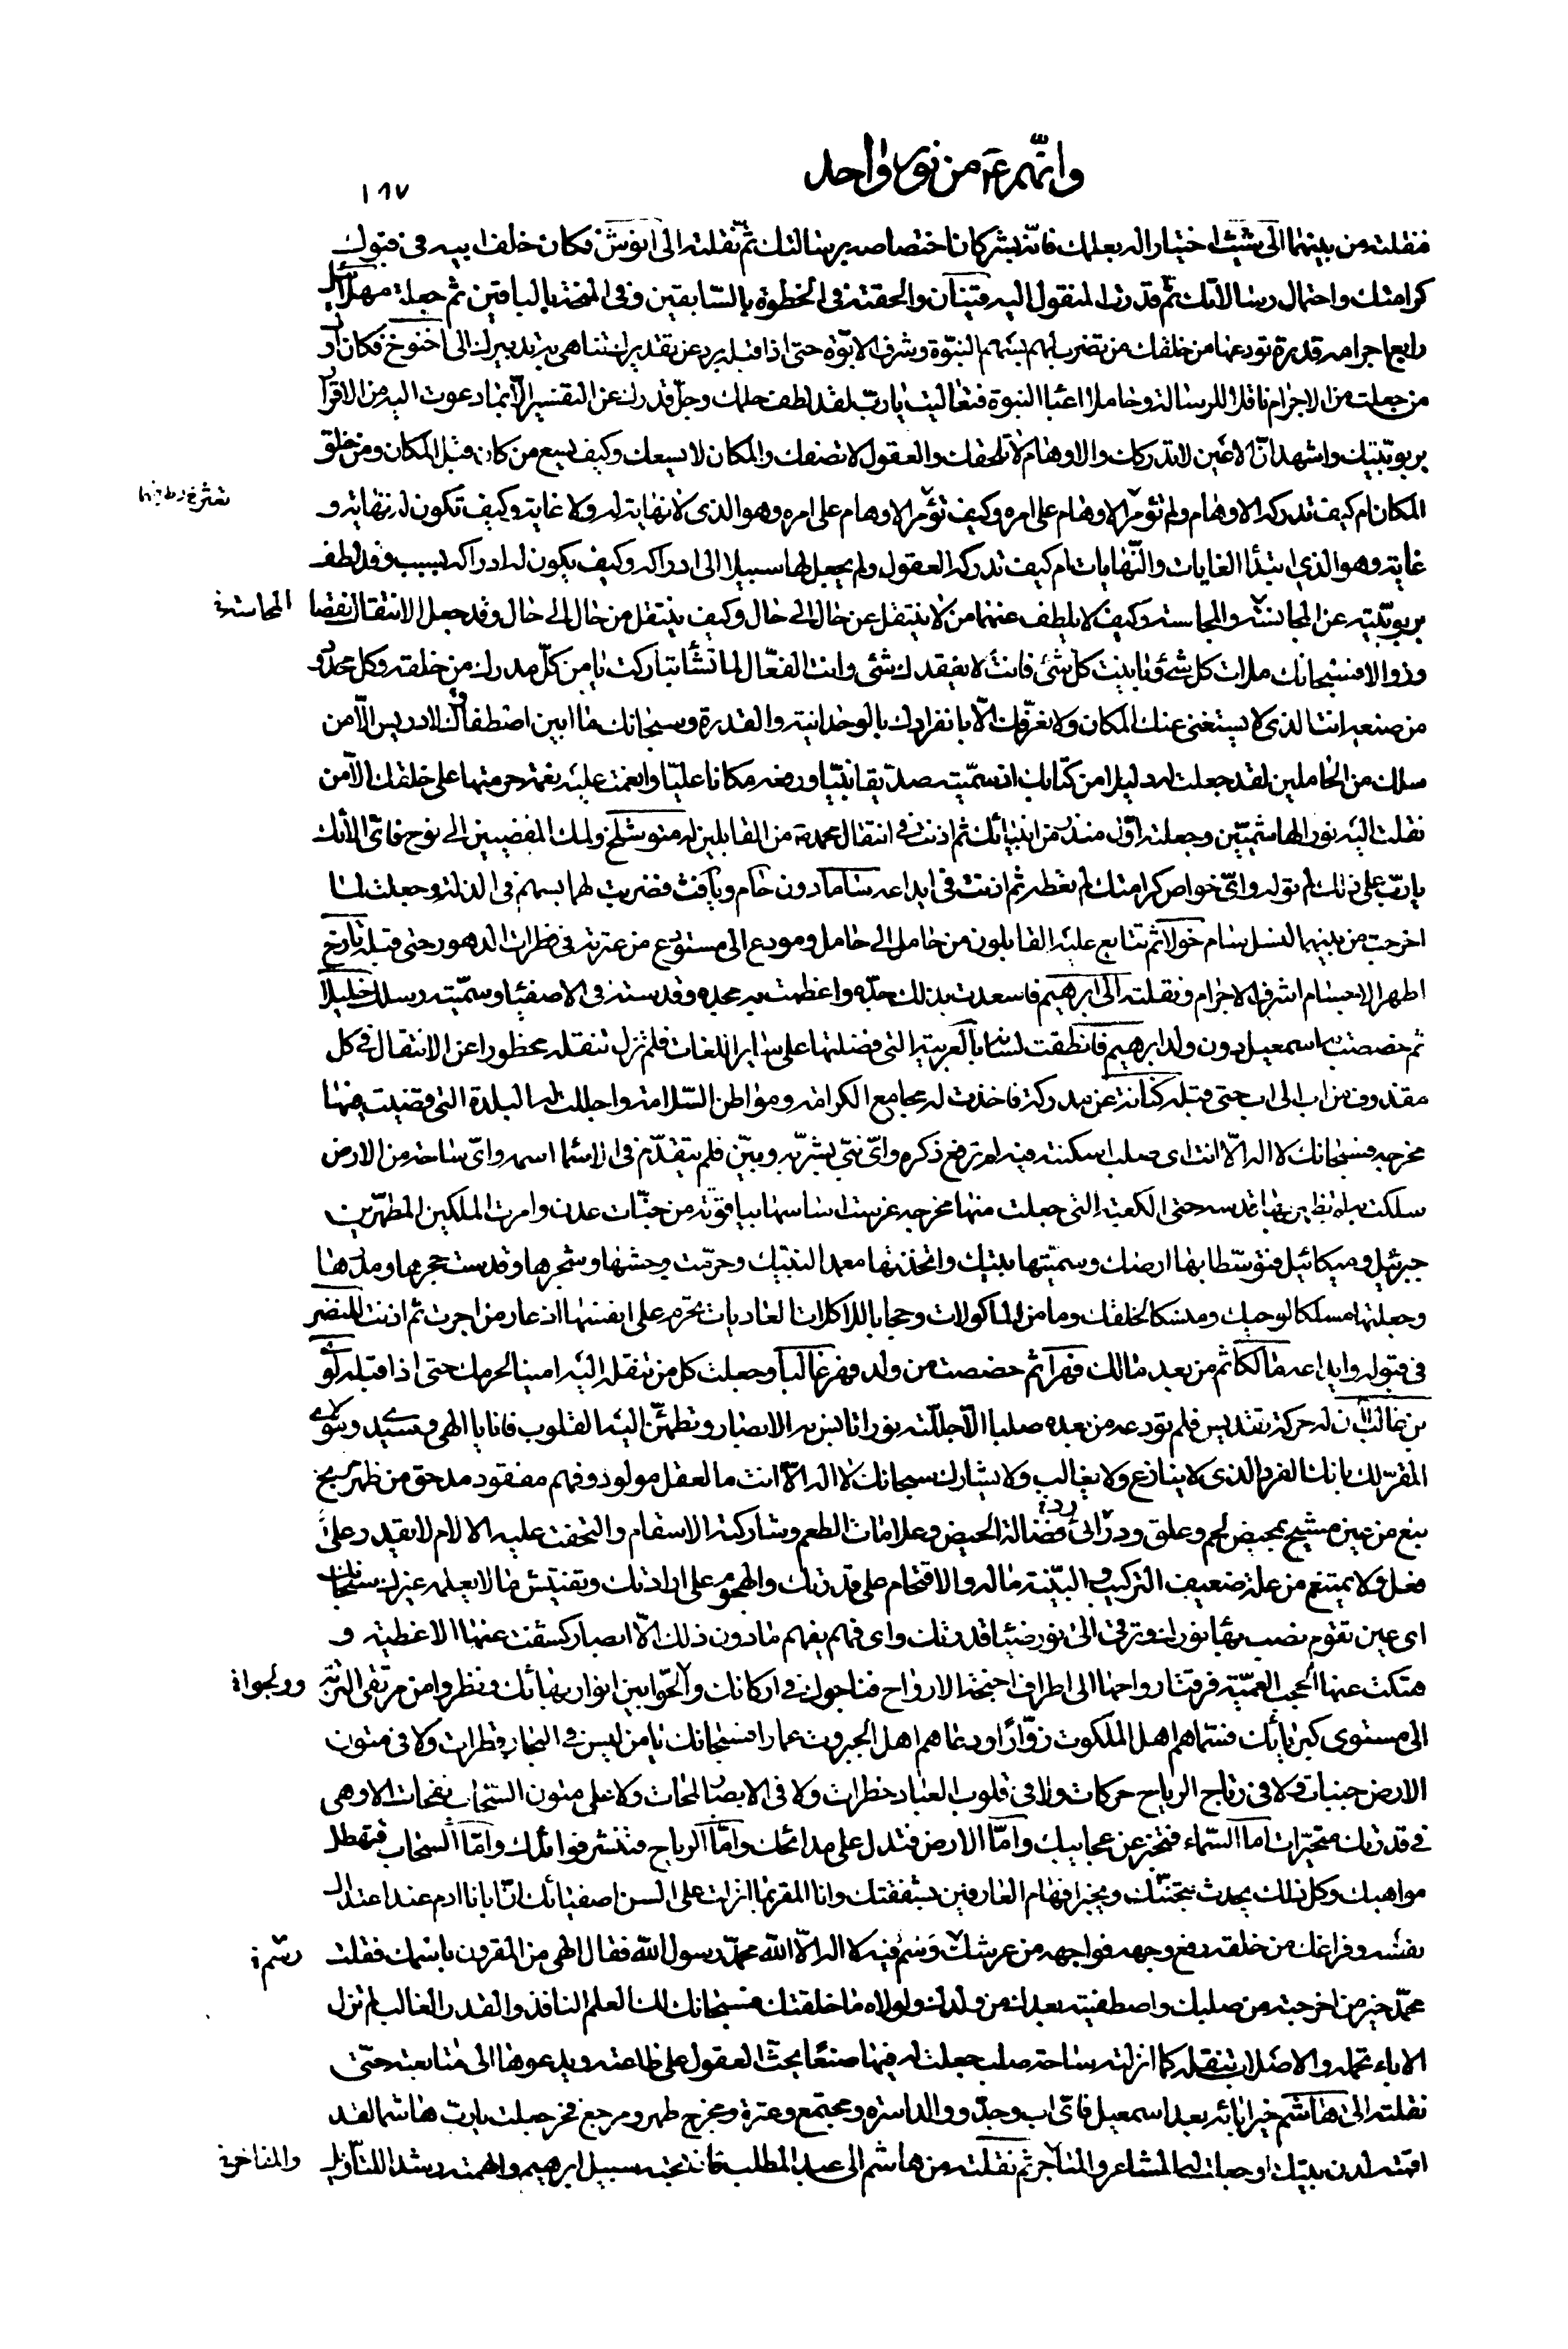 وانّهم ع من نور واحد
١٦٧
فنقلته من بينهما الى شيث اختيارا له بعلمك فانّه بشر كان اختصاصه برسالتك ثمّ نقلته الى انوش فكان خلف ابيه في قبول
كرامتك واحتمال رسالاتك ثمّ قدرت المنقول اليه قينان والحقته في الخطوة بالسّابقين وفي المنحة بالباقين ثم جعلت مهلائيل
رابع اجرامه قدرة تودعها من خلقك من تضرب لهم بسهم النبّوة وشرف الابوّة حتى اذا قبله برد عن تقديرك تناهى به تدبيرك الى اخنوخ فكان اوّل
من جعلت من الاجرام ناقلا للرسالة وحاملا اعباء النبوة فتعاليت يا ربّ لقد لطف حلمك وجلّ قدرك عن التفسير الّا بما دعوت اليه من الاقرار
بربوبيّتك واشهد انّ الاعين لا تدركك والاوهام لا تلحقك والعقول لا تصفك والمكان لا يسعك وكيف يسع من كان قبل المكان ومن خلق
المكان ام كيف تدركه الاوهام ولم تؤمر الاوهام على امره وكيف تؤمر الاوهام على امره وهو الذي لا نهاية له ولا غاية وكيف تكون له نهاية و
غاية وهو الذي ابتدأ الغايات والنّهايات ام كيف تدركه العقول ولم يجعل لها سبيلا الى ادراكه وكيف يكون له ادراكه بسبب وقد لطف
بربوبيّته عن المجانسة والمجاسة وكيف لا يلطف عنهما من لا ينتقل عن حال الى حال وكيف ينتقل من حال الى حال وقد جعل الانتقال نقصا
المحاسّة خ
وزوالا فسبحانك ملأت كل شئ وباينت كل شئ فانت لا يفقدك شئ وانت الفعّال لما تشاء تباركت يا من كلّ مدرك من خلقه وكل محدود
من صنعه انت الذي لا يستغني عنك المكان ولا نعرفك الّا بانفرادك بالوحدانية والقدرة وسبحانك ما ابين اصطفاءك لادريس الّا من
سلك من الحاملين لقد جعلت له دليلا من كتابك اذ سمّيته صدّيقا نبيّا ورفعته مكانا عليّا وانعمت عليه نعمة حرمتها على خلقك الّا من
نقلت اليه نور الهاشميّين وجعلته اوّل منذر من انبيائك ثم اذنت في انتقال محمد ص من القابلين له متوشلخ ولمك المفضيين الى نوح فاىّ الآئك
يا ربّ على ذلك لم توله واىّ خواص كرامتك لم تعطه ثم اذنت في ايداعه ساما دون حام ويافث فضربت لهما بسهم في الذلة وجعلت ما
اخرجت من بينهما لنسل سام خولا ثم تتابع عليه القابلون من حامل الى حامل ومودع الى مستودع من عترته في فطرات الدهور حتى قبله تارخ
اطهر الاجسام اشرف الاجرام ونقلته الى ابرهيم فاسعدت بذلك جدّه واعظمت به مجده وقدسته في الاصفياء وسمّيته دون رسلك خليلا
ثم خصصت به اسمعيل دون ولد ابرهيم فانطقت لسانه بالعربية التي فضلتها على ساير اللغات فلم تزل تنقله محظورا عن الانتقال في كل
مقذوف من اب الى اب حتى قبله كنانة عن مدركة فاخذت له مجامع الكرامة ومواطن السّلامة واجللت له البلدة التي قضيت فيها
مخرجه فسبحانك لا اله الّا انت اى صلب اسكنته فيه لم ترفع ذكره واىّ نبيّ بشّر به وبيّن فلم يتقدّم في الاسماء اسمه واىّ ساحة من الارض
سلكت به لم تظهر بها قدسه حتى الكعبة التي جعلت منها مخرجه غرست اساسها بياقوتة من جنّات عدن وامرت الملكين المطهّرين
جبرئيل وميكائيل فتوسّطا بها ارضك وسمّيتها بيتك واتخذتها معمدا لنبيك وحرّمت وحشها وشجرها وقدست حجرها ومدرها
وجعلتها مسلكا لوحيك ومنسكا لخلقك ومامن الماكولات وحجابا للاكلات العاديات تحرّم على انفسها اذعار من اجرت ثم اذنت للنضر
في قبوله وايداعه مالكا ثم من بعد مالك فهرا ثم خصصت من ولد فهر غالبا وجعلت كل من تنقله اليه امينا لحرمك حتى اذا قبله لوى
بن غالب ان له حركة تقديس فلم تودعه من بعده صلبا الّا جللته نورا تانس به الابصار وتطمئنّ اليه القلوب فانا يا الهي وسيدي ومولاي
المقرّ لك بانك الفرد الذي لا ينازع ولا يغالب ولا يشارك سبحانك لا اله الّا انت ما لعقل مولود وفهم مفقود مدحق من ظهر مريج
نبع من عين مشيج بمحيض لحم وعلق ودرّ الى فضالة الحيض وعلامات الطعم وشاركته الاسقام والتحفت عليه الالام لا يقدر على
فعل ولا يمتنع من علة ضعيف التركيب والبنية ماله والاقتحام على قدرتك والهجوم على ارادتك وتفتيش ما لا يعلمه غيرك سبحانك
اى عين تقوم نصب بهاء نورك وترقى الى نور ضياء قدرتك واى فهم يفهم ما دون ذلك الّا ابصار كشفت عنها الاغطية و
هتكت عنها الحجب العميّة فرقت ارواحها الى اطراف اجنحة الارواح فناجوك في اركانك والحّوا بين انوار بهائك ونظروا من مرتقى التربة
وولجوا خ
الى مستوى كبريائك فسمّاهم اهل الملكوت زوّارا ودعاهم اهل الجبروت عمارا فسبحانك يا من ليس في البحار قطرات ولا في متون
الارض جنبات ولا في رتاج الرياح حركات ولا في قلوب العباد خطرات ولا في الابصار لمحات ولا على متون السّحاب نفحات الا وهي
في قدرتك متحيّرات اما السّماء فتخبر عن عجايبك وامّا الارض فتدل على مدائحك وامّا الرياح فتنشر فوائدك وامّا السّحاب فتهطل
مواهبك وكل ذلك يحدث بتحنّنك ويخبر افهام العارفين بشفقتك وانا المقر بما انزلت على السن اصفيائك انّ ابانا ادم عند اعتدال
نفسه وفراغك من خلقه رفع وجهه فواجهه من عرشك وسم فيه لا اله الّا الله محمّد رسول الله فقال الهي من المقرون باسمك فقلت
رسم خ
محمّد خير من اخرجته من صلبك واصطفيته بعدك من ولدك ولولاه ما خلقتك فسبحانك لك العلم النافذ والقدر الغالب لم تزل
الاباء تحمله والاصلاب تنقله كلما انزلته ساحة صلب جعلت له فيها صنعًا يحثّ العقول على طاعته ويدعوها الى متابعته حتّى
نقلته الى هاشم خير ابائه بعد اسمعيل فاىّ اب وجدّ ووالد اسرة ومجتمع وعترة ومخرج طهر ومرجع فخر جعلت يا ربّ هاشما لقد
اقمته لدن بيتك وجعلت له المشاعر والمتاجر ثم نقلته من هاشم الى عبد المطلب فانهجته سبيل ابرهيم والهمته رشدا للتأويل
والمفاخر خ